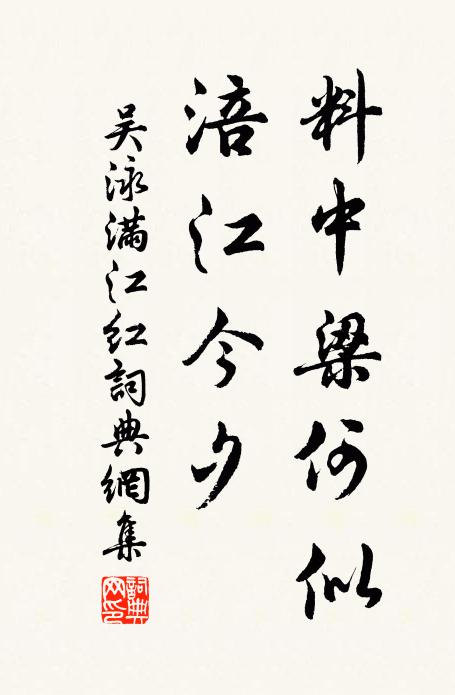 料中梁何似
涪江今夕
吴泳满江红詞典網集
詞典网印